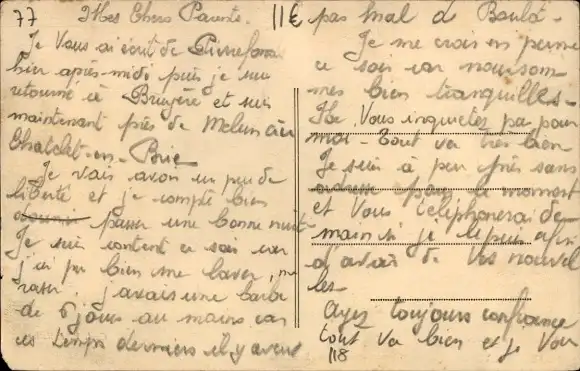 77
Mes Chers Parents.
Je Vous ai écrit de Pierrefonds
hier après-midi puis je suis
retourné à Bruyère et suis
maintenant près de Melun au
Chatelet-en-Brie
Je vais avoir un peu de
liberté et je compte bien
passer une bonne nuit
Je suis content ce soir car
j'ai pu bien me laver, me
raser. j'avais une barbe
de 6 jours au moins car
ces temps derniers il y avait
11€
pas mal de Boulot.
Je me crois en perme
ce soir car nous som
mes bien tranquilles.
Ne Vous inquietez pas pour
moi. Tout va très bien
Je suis à peu près sans
adresse pour le moment
et Vous téléphonerai de
main si je le puis afin
d'avoir de Vos nouvel
les.
Ayez toujours confiance
tout va bien et je Vous
118